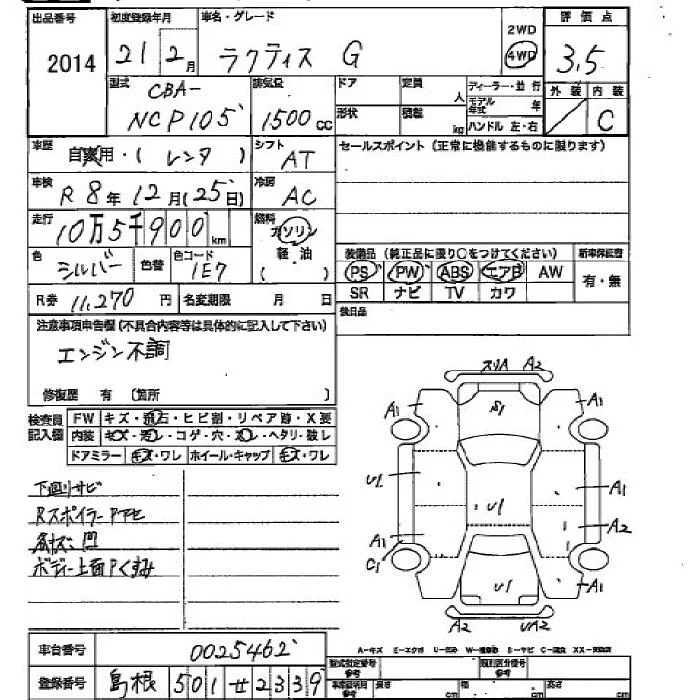 出品番号 初度登録年月 車名・グレード 評価点
2014 21 2月 ラクティス G 2WD 4WD 3.5
型式 CBA- 排気量 ドア 定員 人 ディーラー・並行 外装 内装
NCP105 1500cc 形状 積載 kg モデル年式 年 C
ハンドル 左・右
車歴 自家用・(レンタ) シフト AT セールスポイント(正常に機能するものに限ります)
車検 R8年12月(25日) 冷房 AC
走行 10万5千900km 燃料 ガソリン
軽・油
( )
色 シルバー 色替 色コード 1E7
装備品(純正品に限り○をつけてください) 新車保証書
PS PW ABS エアB AW 有・無
SR ナビ TV カワ
R券 11,270円 名変期限 月 日
後日品
注意事項申告欄(不具合内容等は具体的に記入して下さい)
エンジン不調
修復歴 有 〔箇所 〕
検査員 FW キズ・飛石・ヒビ割・リペア跡・X要
記入欄 内装 キズ・汚レ・コゲ・穴・スレ・ヘタリ・破レ
ドアミラー キズ・ワレ ホイール・キャップ キズ・ワレ
下回りサビ
Rスポイラー
凹
ボデー上面Pくすみ
スリA A2
A1 S1 A1
U1 U1 A1
A2
A1
C1
U1 A1
A2 UA2
A-キズ E-エクボ U-凹み W-補修跡 S-サビ C-腐食 XX-交換済
車台番号 0025462
登録番号 島根 501 せ 2339
型式指定番号 参考 類別区分番号 参考
参考 長さ cm 幅 cm 高さ cm